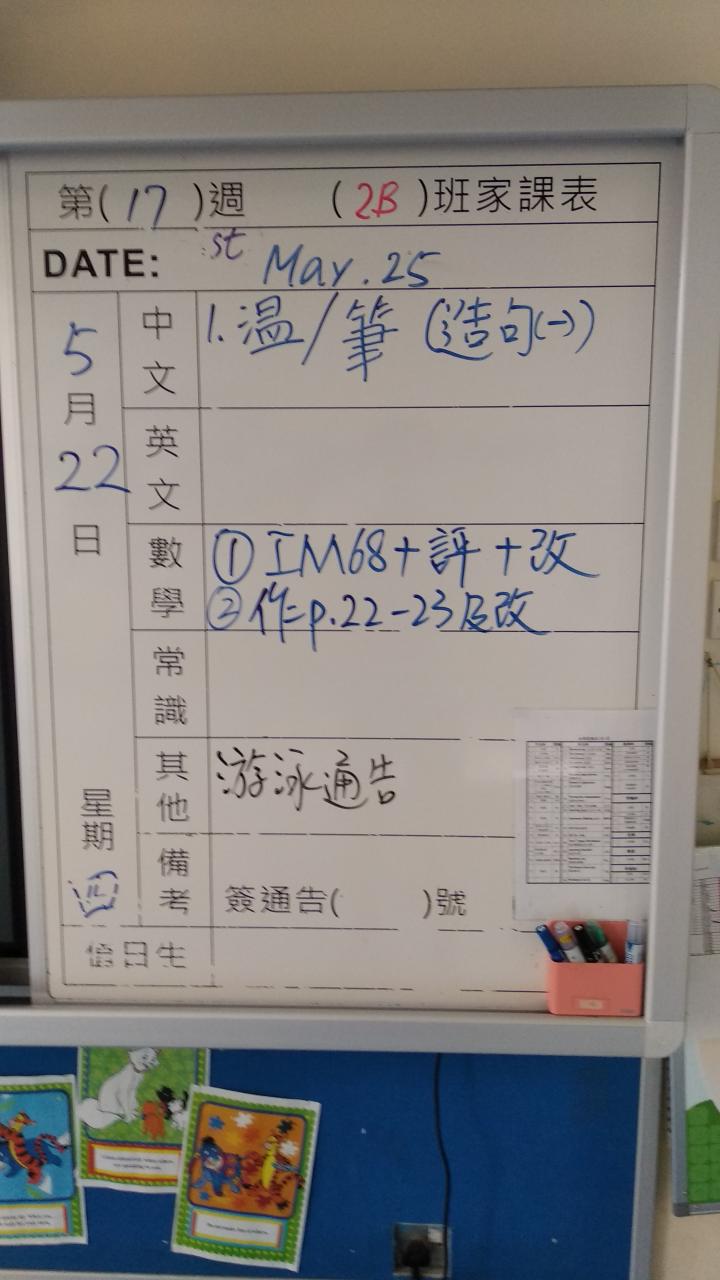 第(17)週 (2B)班家課表
st
DATE: May. 25
5月22日
星期四
中文 1. 温/筆 (造句(一))
英文
數學 ① IM68+評+改
② 作=p.22-23及改
常識
其他 游泳通告
備考 簽通告( )號
值日生